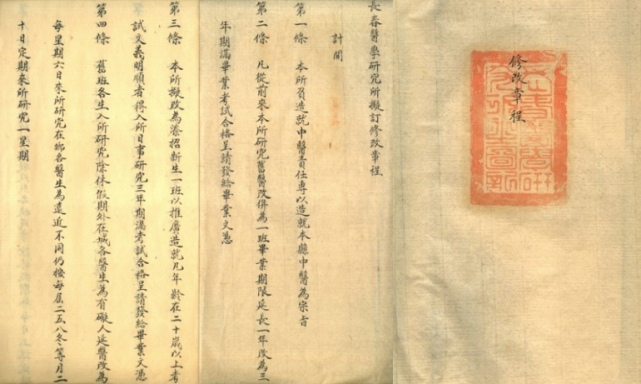 修改章程
長春醫學研究所擬訂修改章程
計開
第一條 本所負造就中醫責任專以造就本縣中醫為宗旨
第二條 凡從前來本所研究舊醫改併為一班畢業期限延長一年改為三
年期滿畢業考試合格呈請發給畢業文憑
第三條 本所擬改為養招新生一班以推廣造就凡年齡在二十歲以上考
試文義明順者得入所日事研究三年期滿考試合格呈請發給畢業文憑
第四條 舊班各生入所研究除休假期外在城各醫生為有礙人延醫改為
每星期六日來所研究在鄉各醫生為遠近不同仍按每屆二五八冬等月二
十日定期來所研究一星期